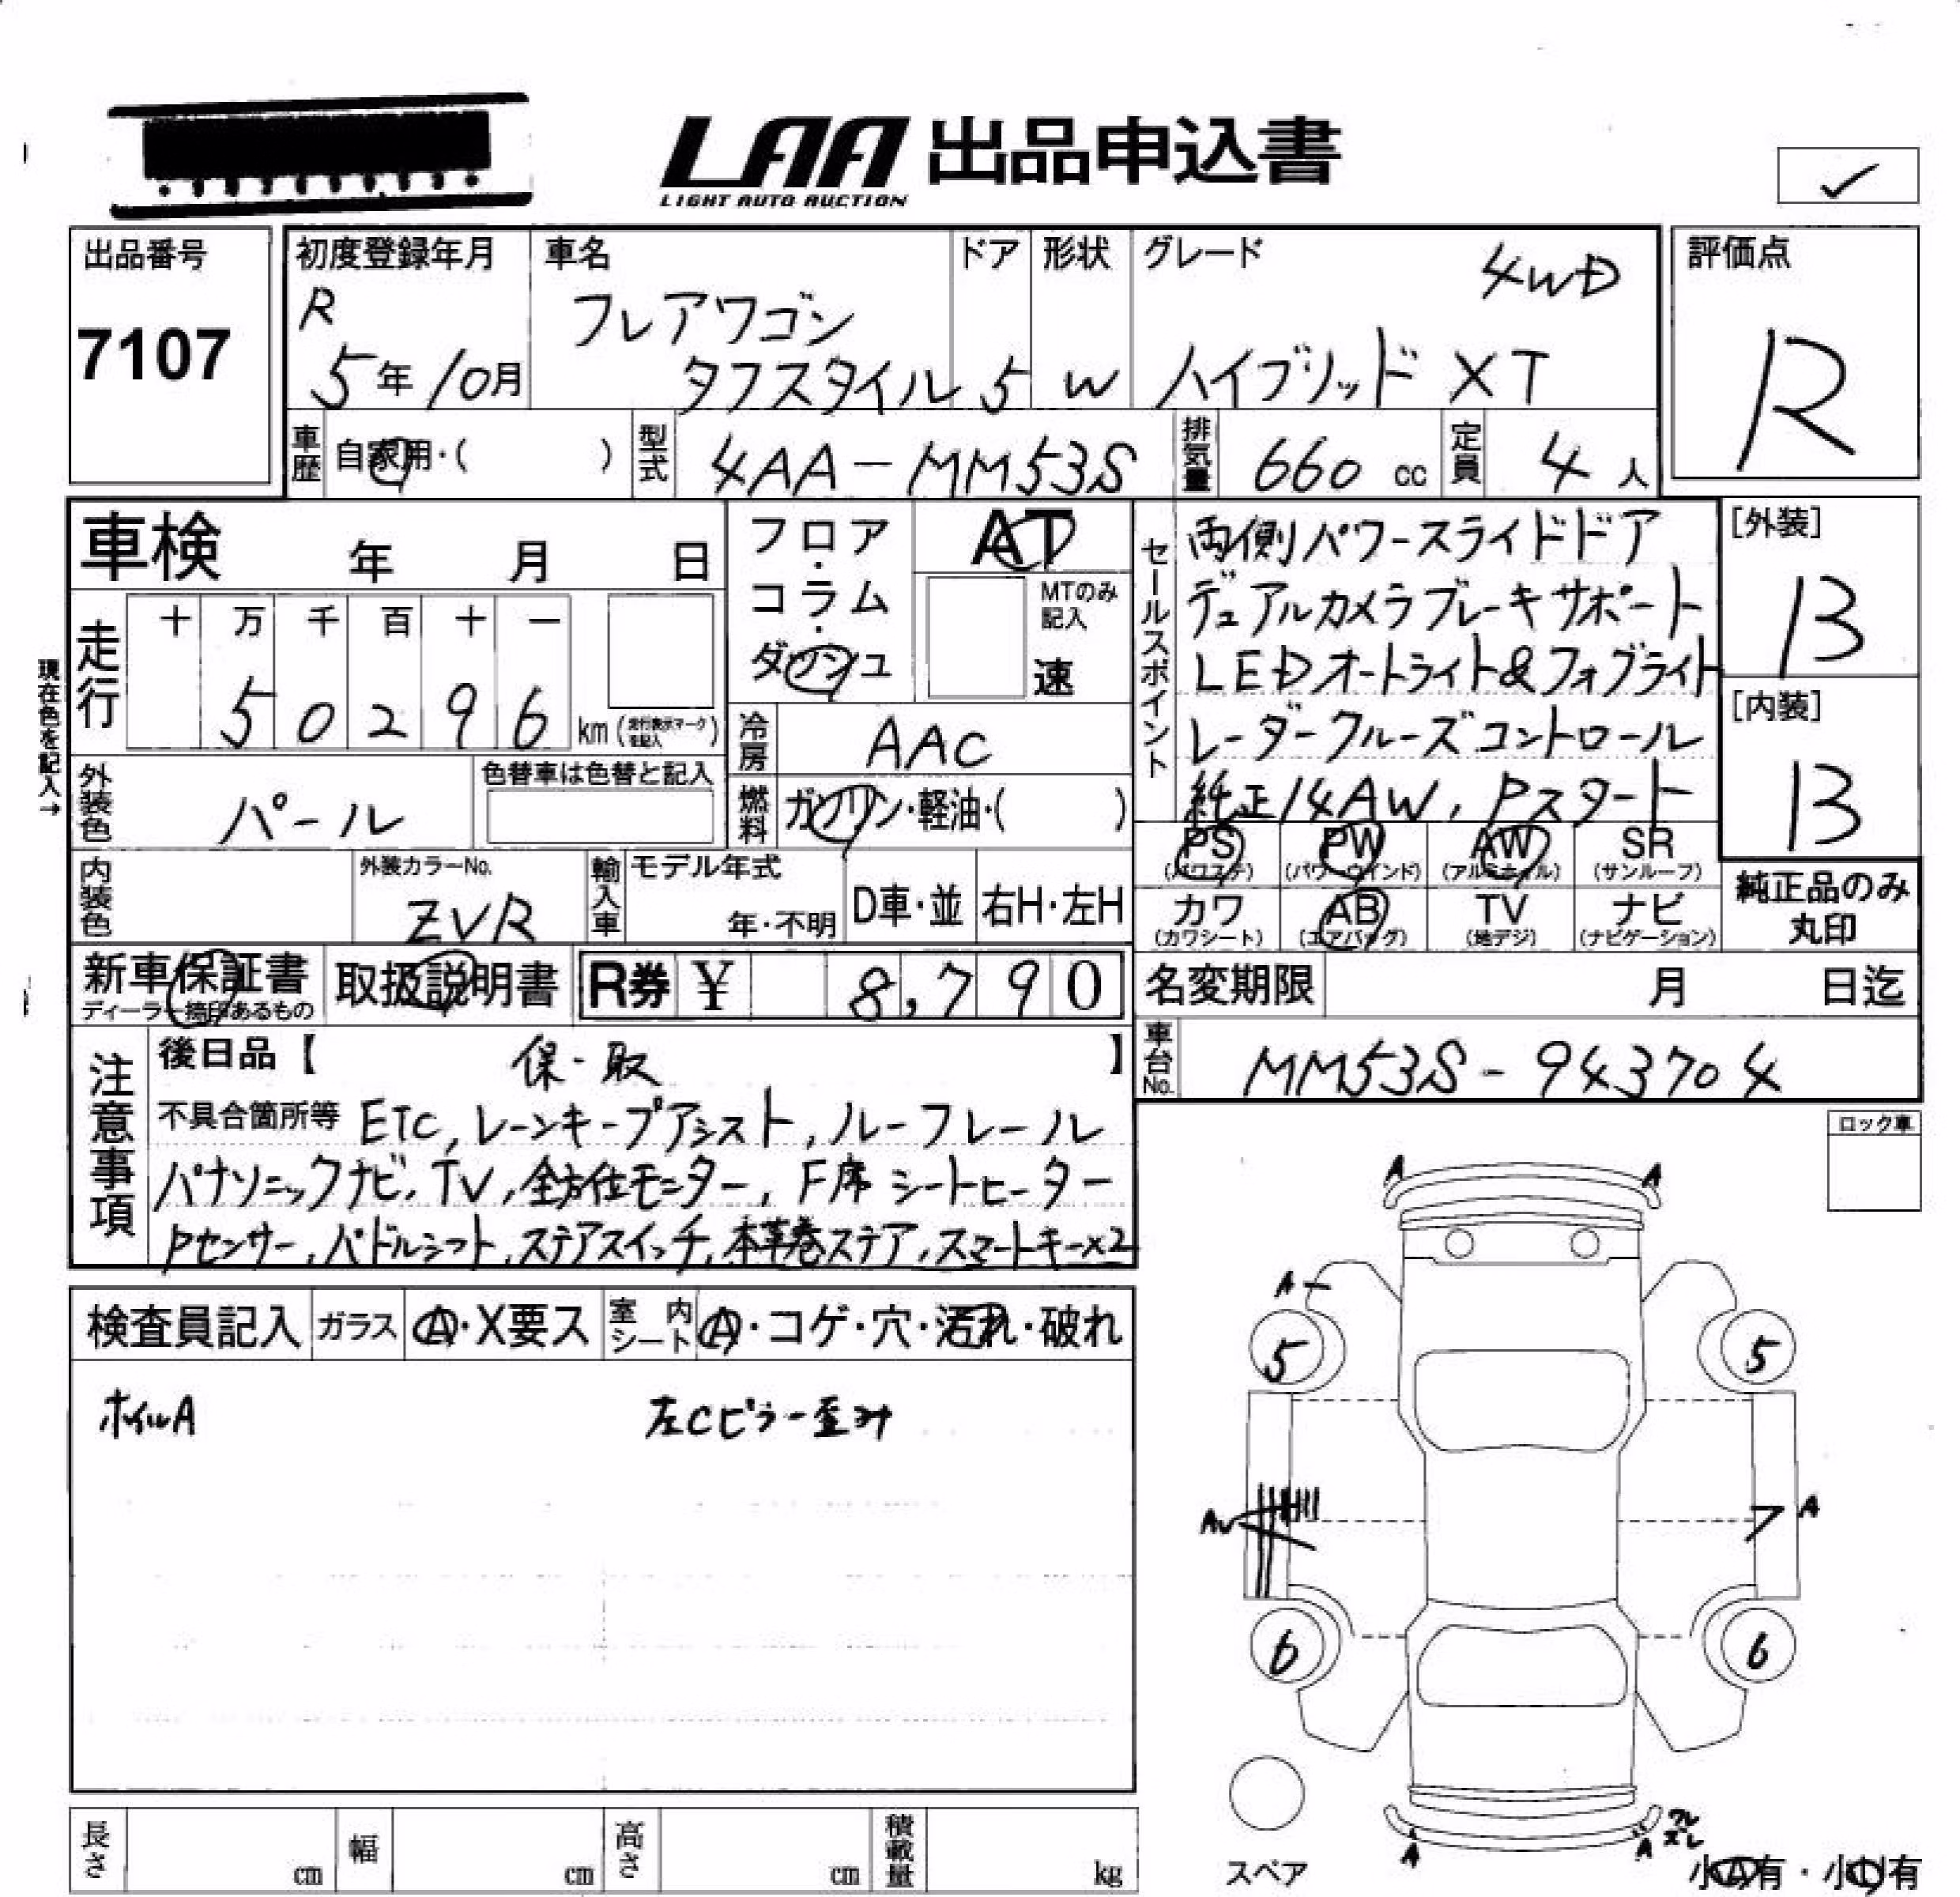 LAA 出品申込書
LIGHT AUTO AUCTION
✓
出品番号
7107
初度登録年月
R
5年10月
車名
フレアワゴン
タフスタイル
ドア
5
形状
W
グレード
4WD
ハイブリッド XT
評価点
R
車歴
自家用・( )
型式
4AA-MM53S
排気量
660 cc
定員
4 人
車検 年 月 日
現在色を記入→
走行
十 万 千 百 十 一
5 0 2 9 6 km (走行表示マークを記入)
フロア・コラム・ダッシュ
AT
MTのみ記入
速
セールスポイント
両側パワースライドドア
デュアルカメラブレーキサポート
LEDオートライト&フォグライト
レーダークルーズコントロール
純正14AW, Pスタート
[外装]
B
[内装]
B
冷房
AAC
外装色
パール
色替車は色替と記入
燃料
ガソリン・軽油・( )
PS PW AW SR
(パワステ) (パワーウインド) (アルミホイル) (サンルーフ)
カワ AB TV ナビ
(カワシート) (エアバッグ) (地デジ) (ナビゲーション)
純正品のみ
丸印
内装色
外装カラーNo.
ZVR
輸入車
モデル年式
年・不明
D車・並
右H・左H
新車保証書
ディーラー捺印あるもの
取扱説明書
R券 ¥ 8,790
名変期限 月 日迄
車台No.
MM53S-943704
注意事項
後日品【 保・取 】
不具合箇所等 ETC, レーンキープアシスト, ルーフレール
パナソニックナビ, TV, 全方位モニター, F席シートヒーター
Pセンサー, パドルシフト, ステアスイッチ, 本革巻ステア, スマートキー×2
ロック車
検査員記入 ガラス A・X要ス 室内シート A・コゲ・穴・汚れ・破れ
ホイルA
左Cピラー歪み
A A
A
5 5
A
6 6
ワレ
ズレ
A A
スペア
長さ cm 幅 cm 高さ cm 積載量 kg